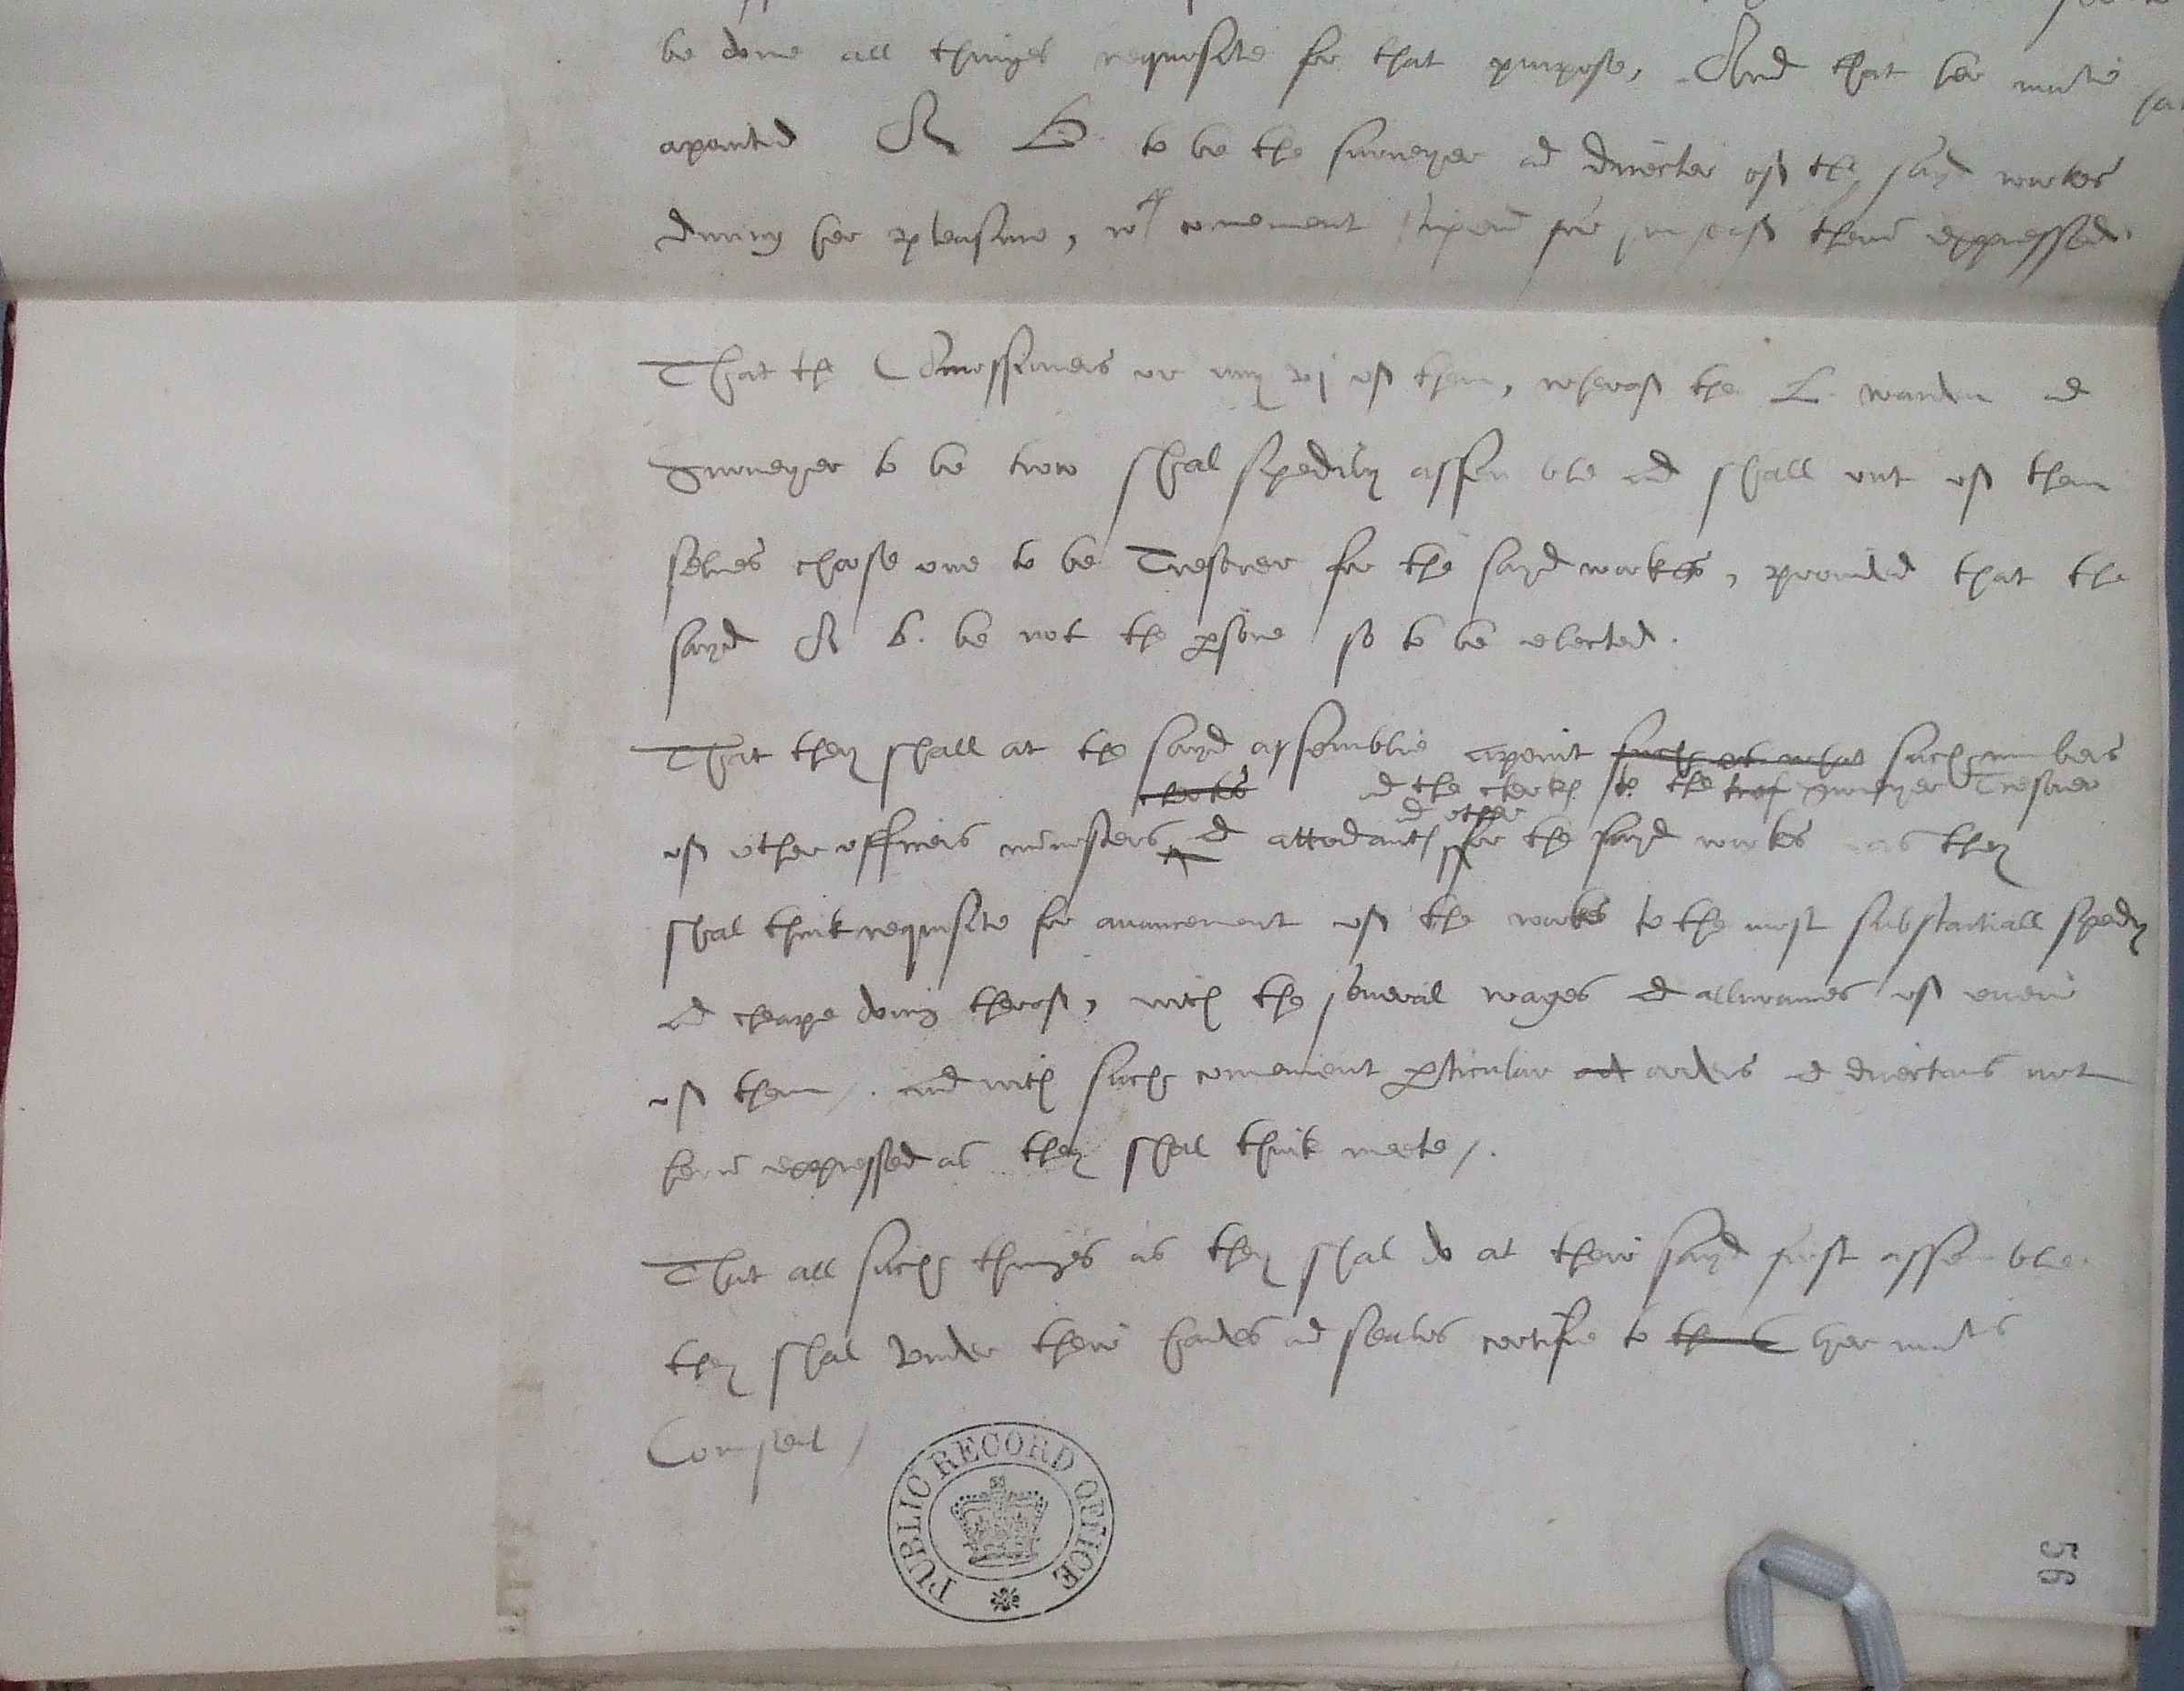 be done all thinges requisite for that purpose, And that her matie
apointed A B. to be the surveyer ad director off the sayd workes
during her pleasure, wth convenient stipend for hym self therin expressed.
That the Comissioners or any vj off them, wheroff the L. warden ad
Surveyer to be two shal spedily assemble ad shall out off them
selves choose one to be Tresorer for the sayd workes, provided that the
sayd A B. be not the psone so to be elected.
That they shall at the sayd assemblie apoint such ot what such numbers
clerkes ad the clerkes to the tres surveyer Tresorer
ad other
off other officers ministers ad attendants for the sayd workes as they
shal think requisite for avancement off the workes to the most substantiall spedy
ad cheape doing theroff, with the several wages ad allowances off everie
off them /. and with such convenient pticular orders ad directions not
herin expressed as they shal think meete /.
That all such thinges as they shal do at their sayd first assemble.
they shal under their handes ad seales certifie to her maties
Counsell /
PUBLIC RECORD OFFICE
56